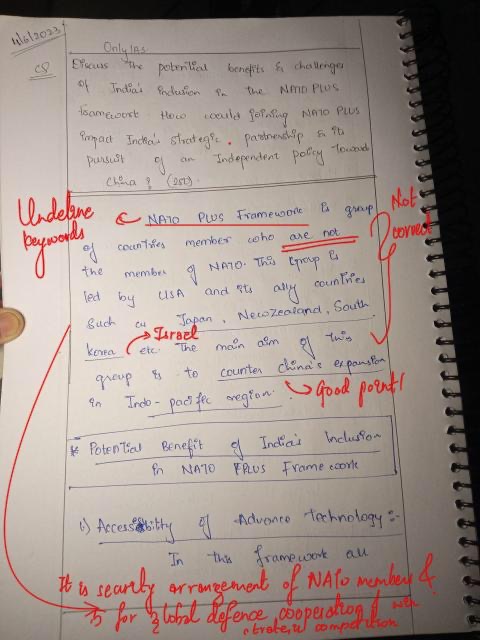 4/6/2023
OnlyIAS
Q
Discuss the potential benefits & challenges
of India's inclusion in the NATO PLUS
framework How could joining NATO PLUS
impact India's strategic. partnership & its
pursuit of an Independent policy toward
China? (250).
Underline
keywords
Not
correct
NATO PLUS Framework is group
of countries member who are not
the member of NATO. This Group is
led by USA and its ally countries
such as Japan, NewZealand, South
Israel
korea etc. The main aim of this
group is to counter China's expansion
in Indo-pacific region.
Good point!
* Potential Benefit of India's Inclusion
in NATO PLUS Framework
1) Accessibility of Advance Technology :-
In this framework all
It is security arrangement of NATO members &
5 for global defence cooperation / with
strategic competition